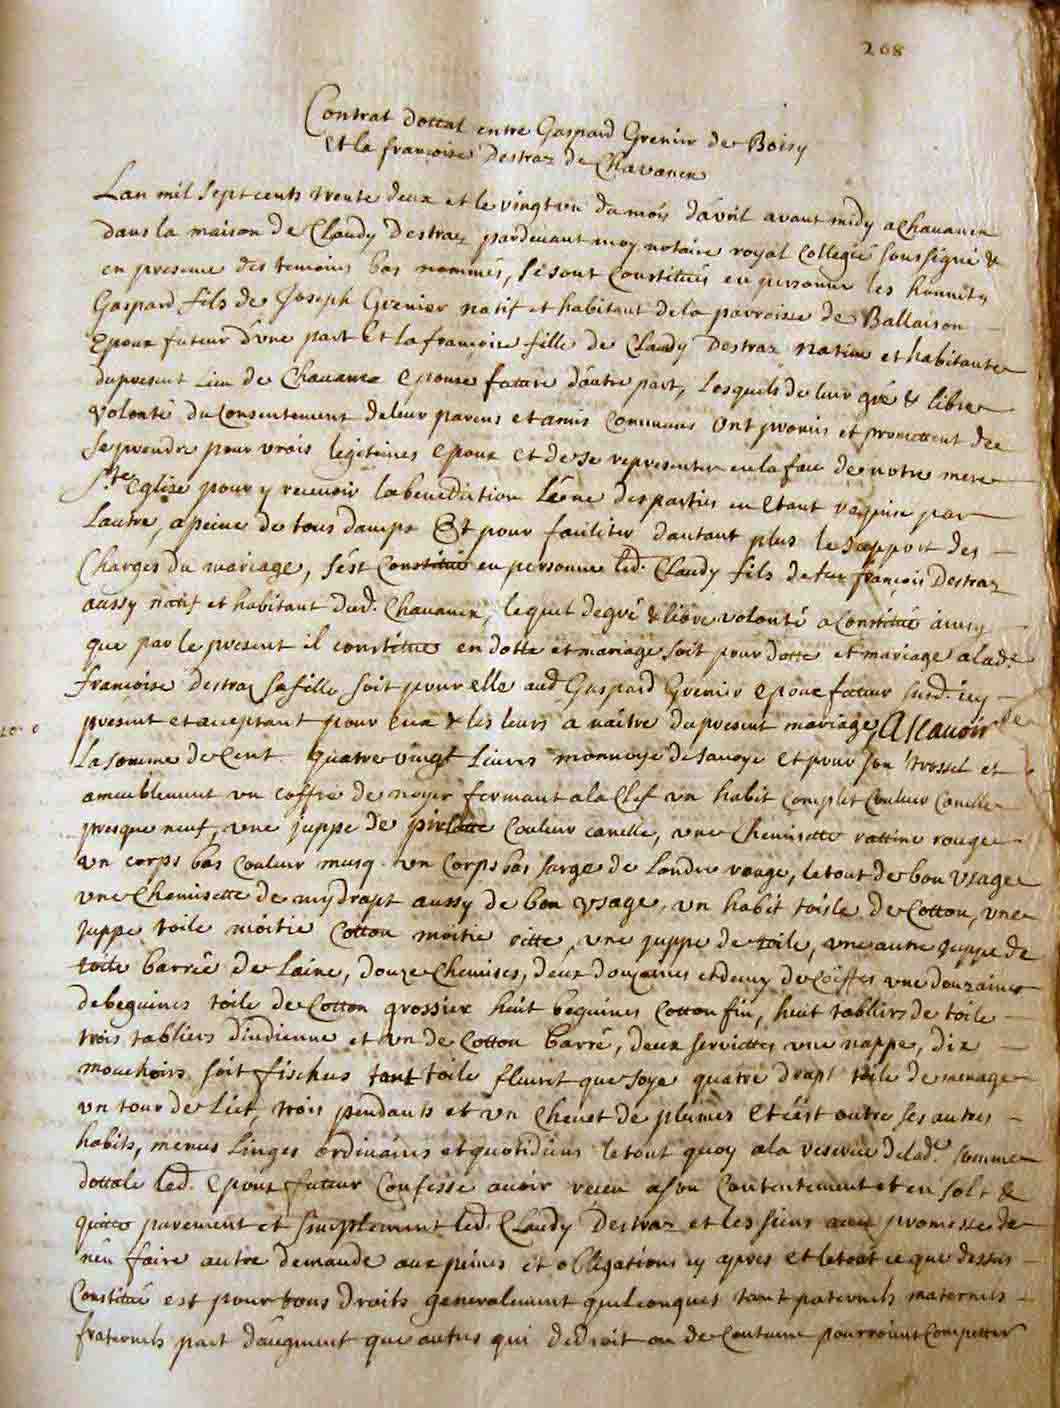 208
Contrat dottal entre Gaspard Grenier de Boisy
et la françoise Destraz de Chavanex
Lan mil sept cents trente deux et le vingt un du mois d'avril avant midy a Chavanex
dans la maison de Claudy Destraz pardevant moy notaire royal Collegié soussigné &
en presence des temoins bas nommés, se sont Constitués en personne les honnetes
Gaspard fils de Joseph Grenier natif et habitant de la parroisse de Ballaison
Epoux futeur d'une part Et la françoise fille de Claudy Destraz native et habitante
du present Lieu de Chavanex epouse future d'autre part, Lesquels de leur gré & libre
volonté du Consentement de leur parens et amis Communs ont promis et promettent de
se prendre pour vrois legitimes epoux et de se representer en la face de notre mere
Ste Eglise pour y recevoir la benediction L'une des parties en etant requise par
Lautre, a peine de tous damps Et pour faciliter d'autant plus le support des
Charges du mariage, s'est Constitué en personne led. Claudy fils de feu françois Destraz
aussy natif et habitant dud. Chavanex, lequel de gré & libre volonté a Constitué ainsy
que par le present il constitue en dotte et mariage soit pour dotte et mariage a lade
françoise Destraz sa fille soit pour elle aud. Gaspard Grenier epoux futeur susd. icy
present et acceptant pour eux & les leurs a naitre du present mariage, Ascavoir
La somme de Cent quatre vingt Livres monnoye de Savoye Et pour son trossel et
ameublement un coffre de noyer fermant a la Clef un habit complet Couleur Canelle
presque neuf, une juppe de Couleur canelle, une Chemisette rattine rouge
un corps bas Couleur musq. un Corps bas sarge de Londre rouge, le tout de bon usage
une Chemisette de mydrapt aussy de bon usage, un habit toisle de Cotton, une
juppe toile moitie Cotton moitie ritte, une juppe de toile, une autre juppe de
toile barrée de laine, douze Chemises, deux douzaines et demy de Coiffes une douzaine
de beguines toile de Cotton grossier huit beguines Cotton fin, huit tabliers de toile
trois tabliers d'indienne et un de Cotton barré, deux serviettes une nappe, dix
mouchoirs soit fischus tant toile fleuret que soye quatre drapt toile de menage
un tour de Lict, trois pendants et un Chevet de plumes Et c'est outre ses autres
habits, menus Linges ordinaires et quotidiens le tout quoy a la reserve de lade. somme
dottale led. epoux futeur Confesse avoir receu a son Contentement et en solt &
quitte purement et simplement led. Claudy Destraz et les siens avec promesse de
n'en faire autre demande aux peines et obligations cy apres et le tout ce que dessus
Constitué est pour tous droits generalement quelconques tant paternels maternels
fraternels part d'augment que autres qui de droit ou de Coutume pourroint Competter